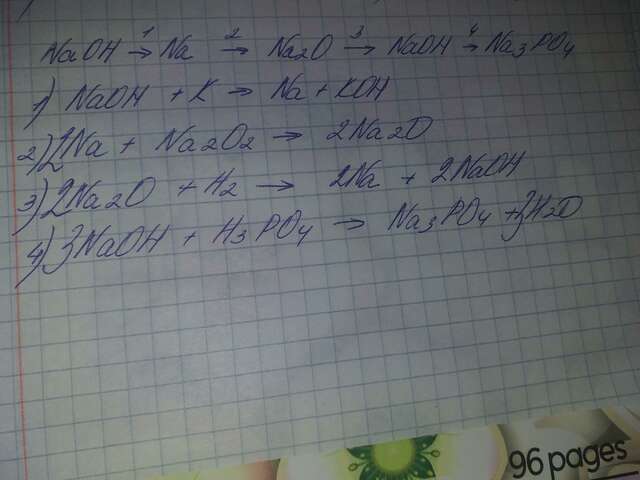 NaOH →¹ Na →² Na₂O →³ NaOH →⁴ Na₃PO₄
1) NaOH + K → Na + KOH
2) 2Na + Na₂O₂ → 2Na₂O
3) 2Na₂O + H₂ → 2Na + 2NaOH
4) 3NaOH + H₃PO₄ → Na₃PO₄ + 3H₂O
96 pages